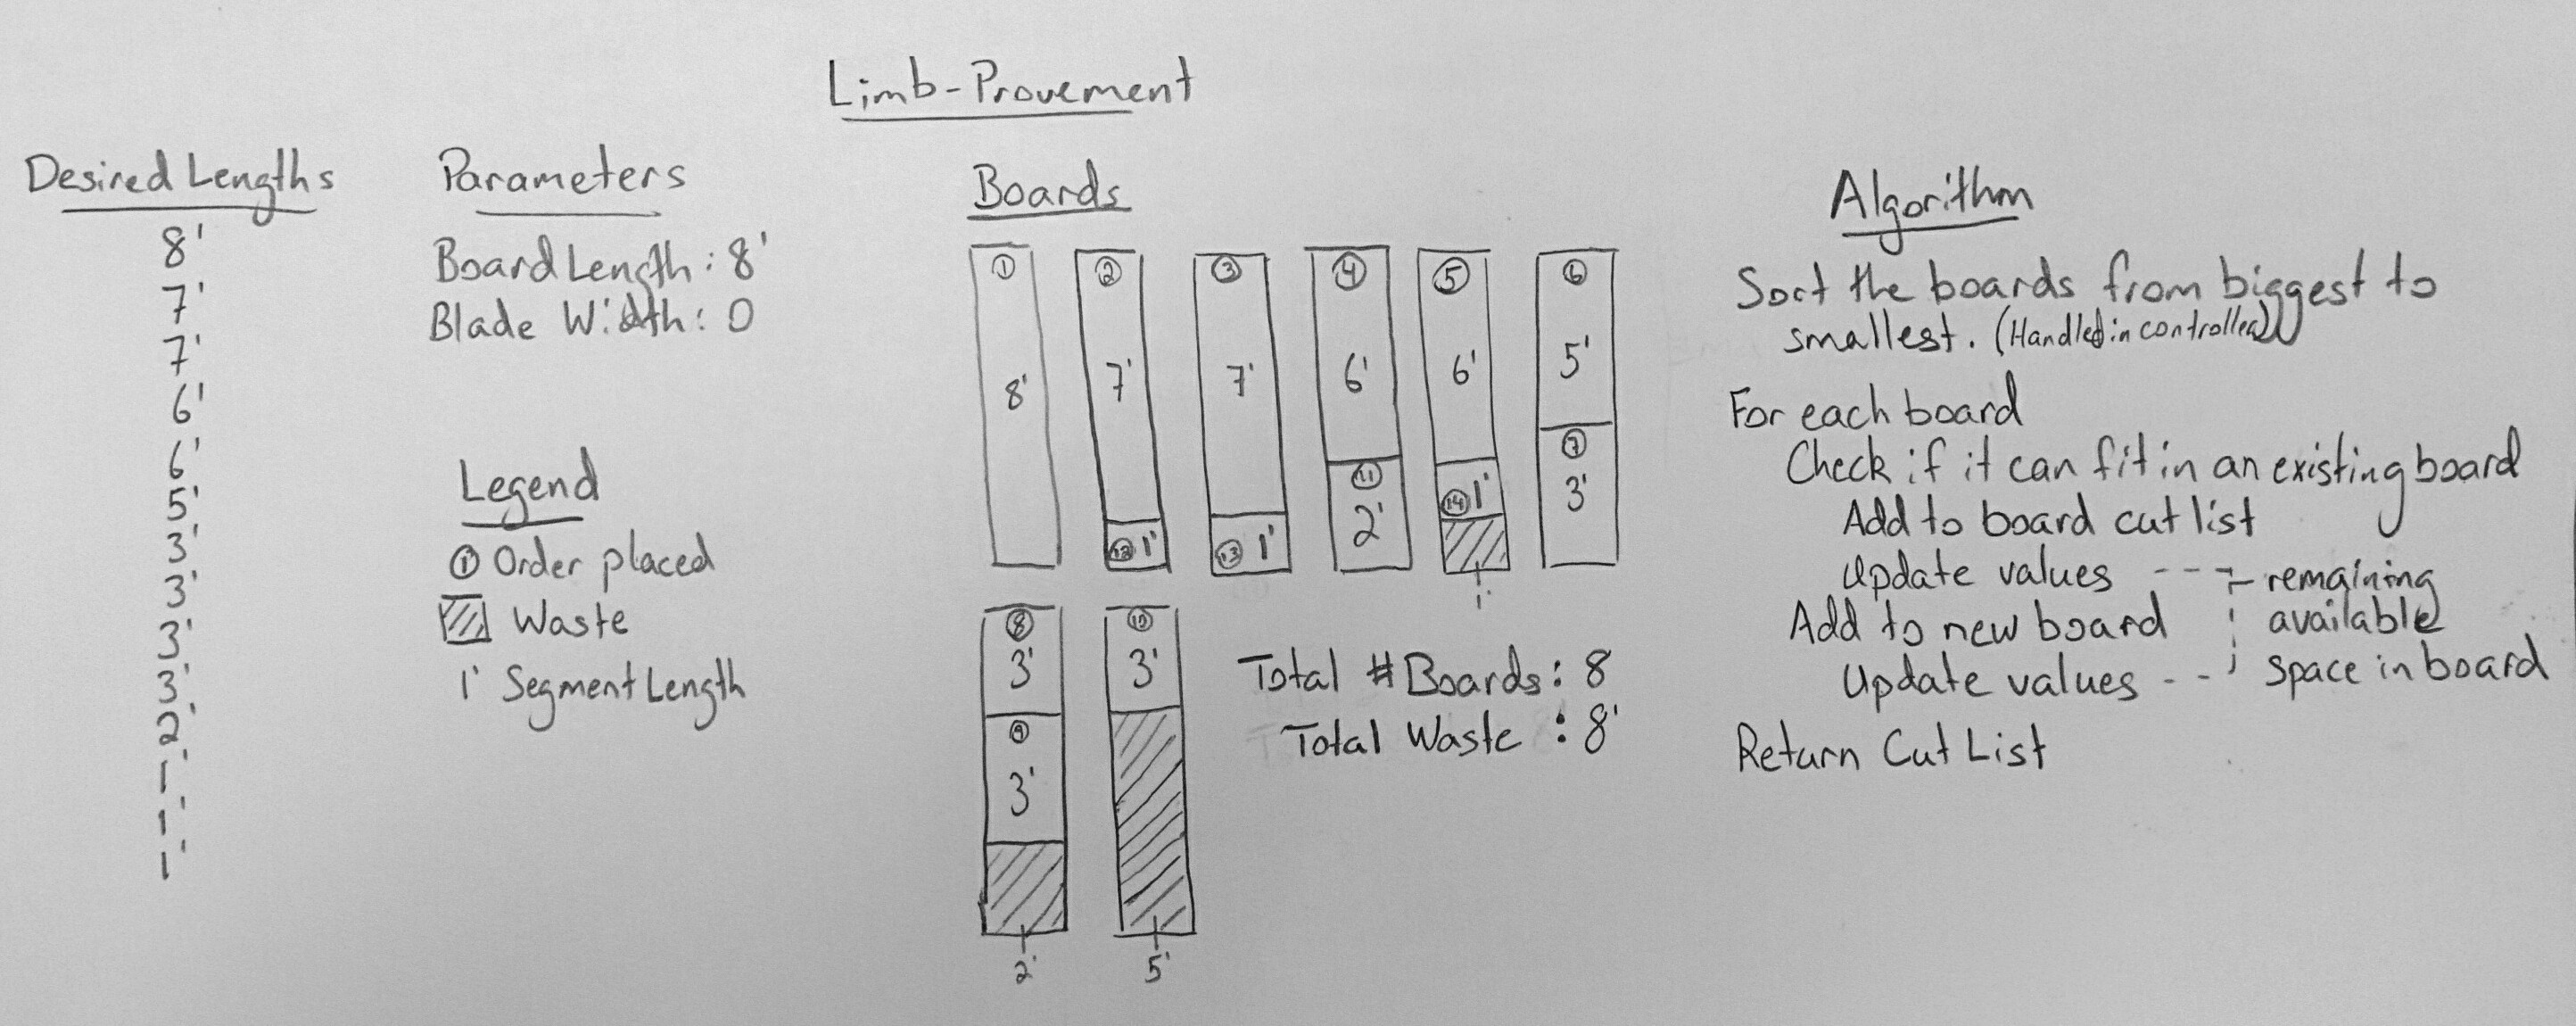 Limb-Provement
Desired Lengths
8'
7'
7'
6'
6'
5'
3'
3'
3'
3'
2'
1'
1'
1'
Parameters
Board Length: 8'
Blade Width: 0
Legend
① Order placed
Waste
1' Segment Length
Boards
① 8'
② 7'
⑫ 1'
③ 7'
⑬ 1'
④ 6'
⑪ 2'
⑤ 6'
⑭ 1'
1'
⑥ 5'
⑦ 3'
⑧ 3'
⑨ 3'
2'
⑩ 3'
5'
Total # Boards: 8
Total Waste: 8'
Algorithm
Sort the boards from biggest to
smallest. (Handled in controller)
For each board
Check if it can fit in an existing board
Add to board cut list
Update values --- remaining
Add to new board available
Update values --- space in board
Return Cut List